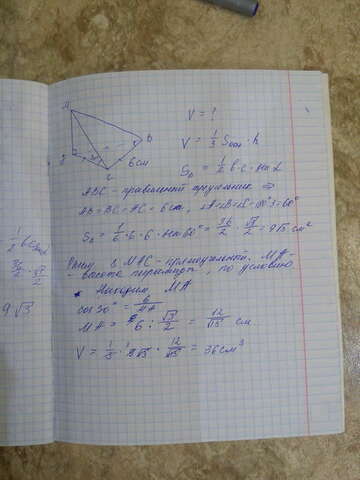 V = ?
V = 1/3 Sосн · h
6см
S△ = 1/2 b·c · sin L
ABC - правильный треугольник ⇒
AB = BC = AC = 6см, ∠A=∠B=∠C=60°
S△ = 1/2 · 6 · 6 · sin 60° = 36/2 · √3/2 = 9√3 см²
- прямоугольный. MA -
высота пирамиды, по условию
Находим MA
cos 30° = 6/MA
MA = 6 : √3/2 = 12/√3 см
V = 1/3 · 9√3 · 12/√3 = 36 см³
1/2 bc sin L
36/2 · √3/2
9√3